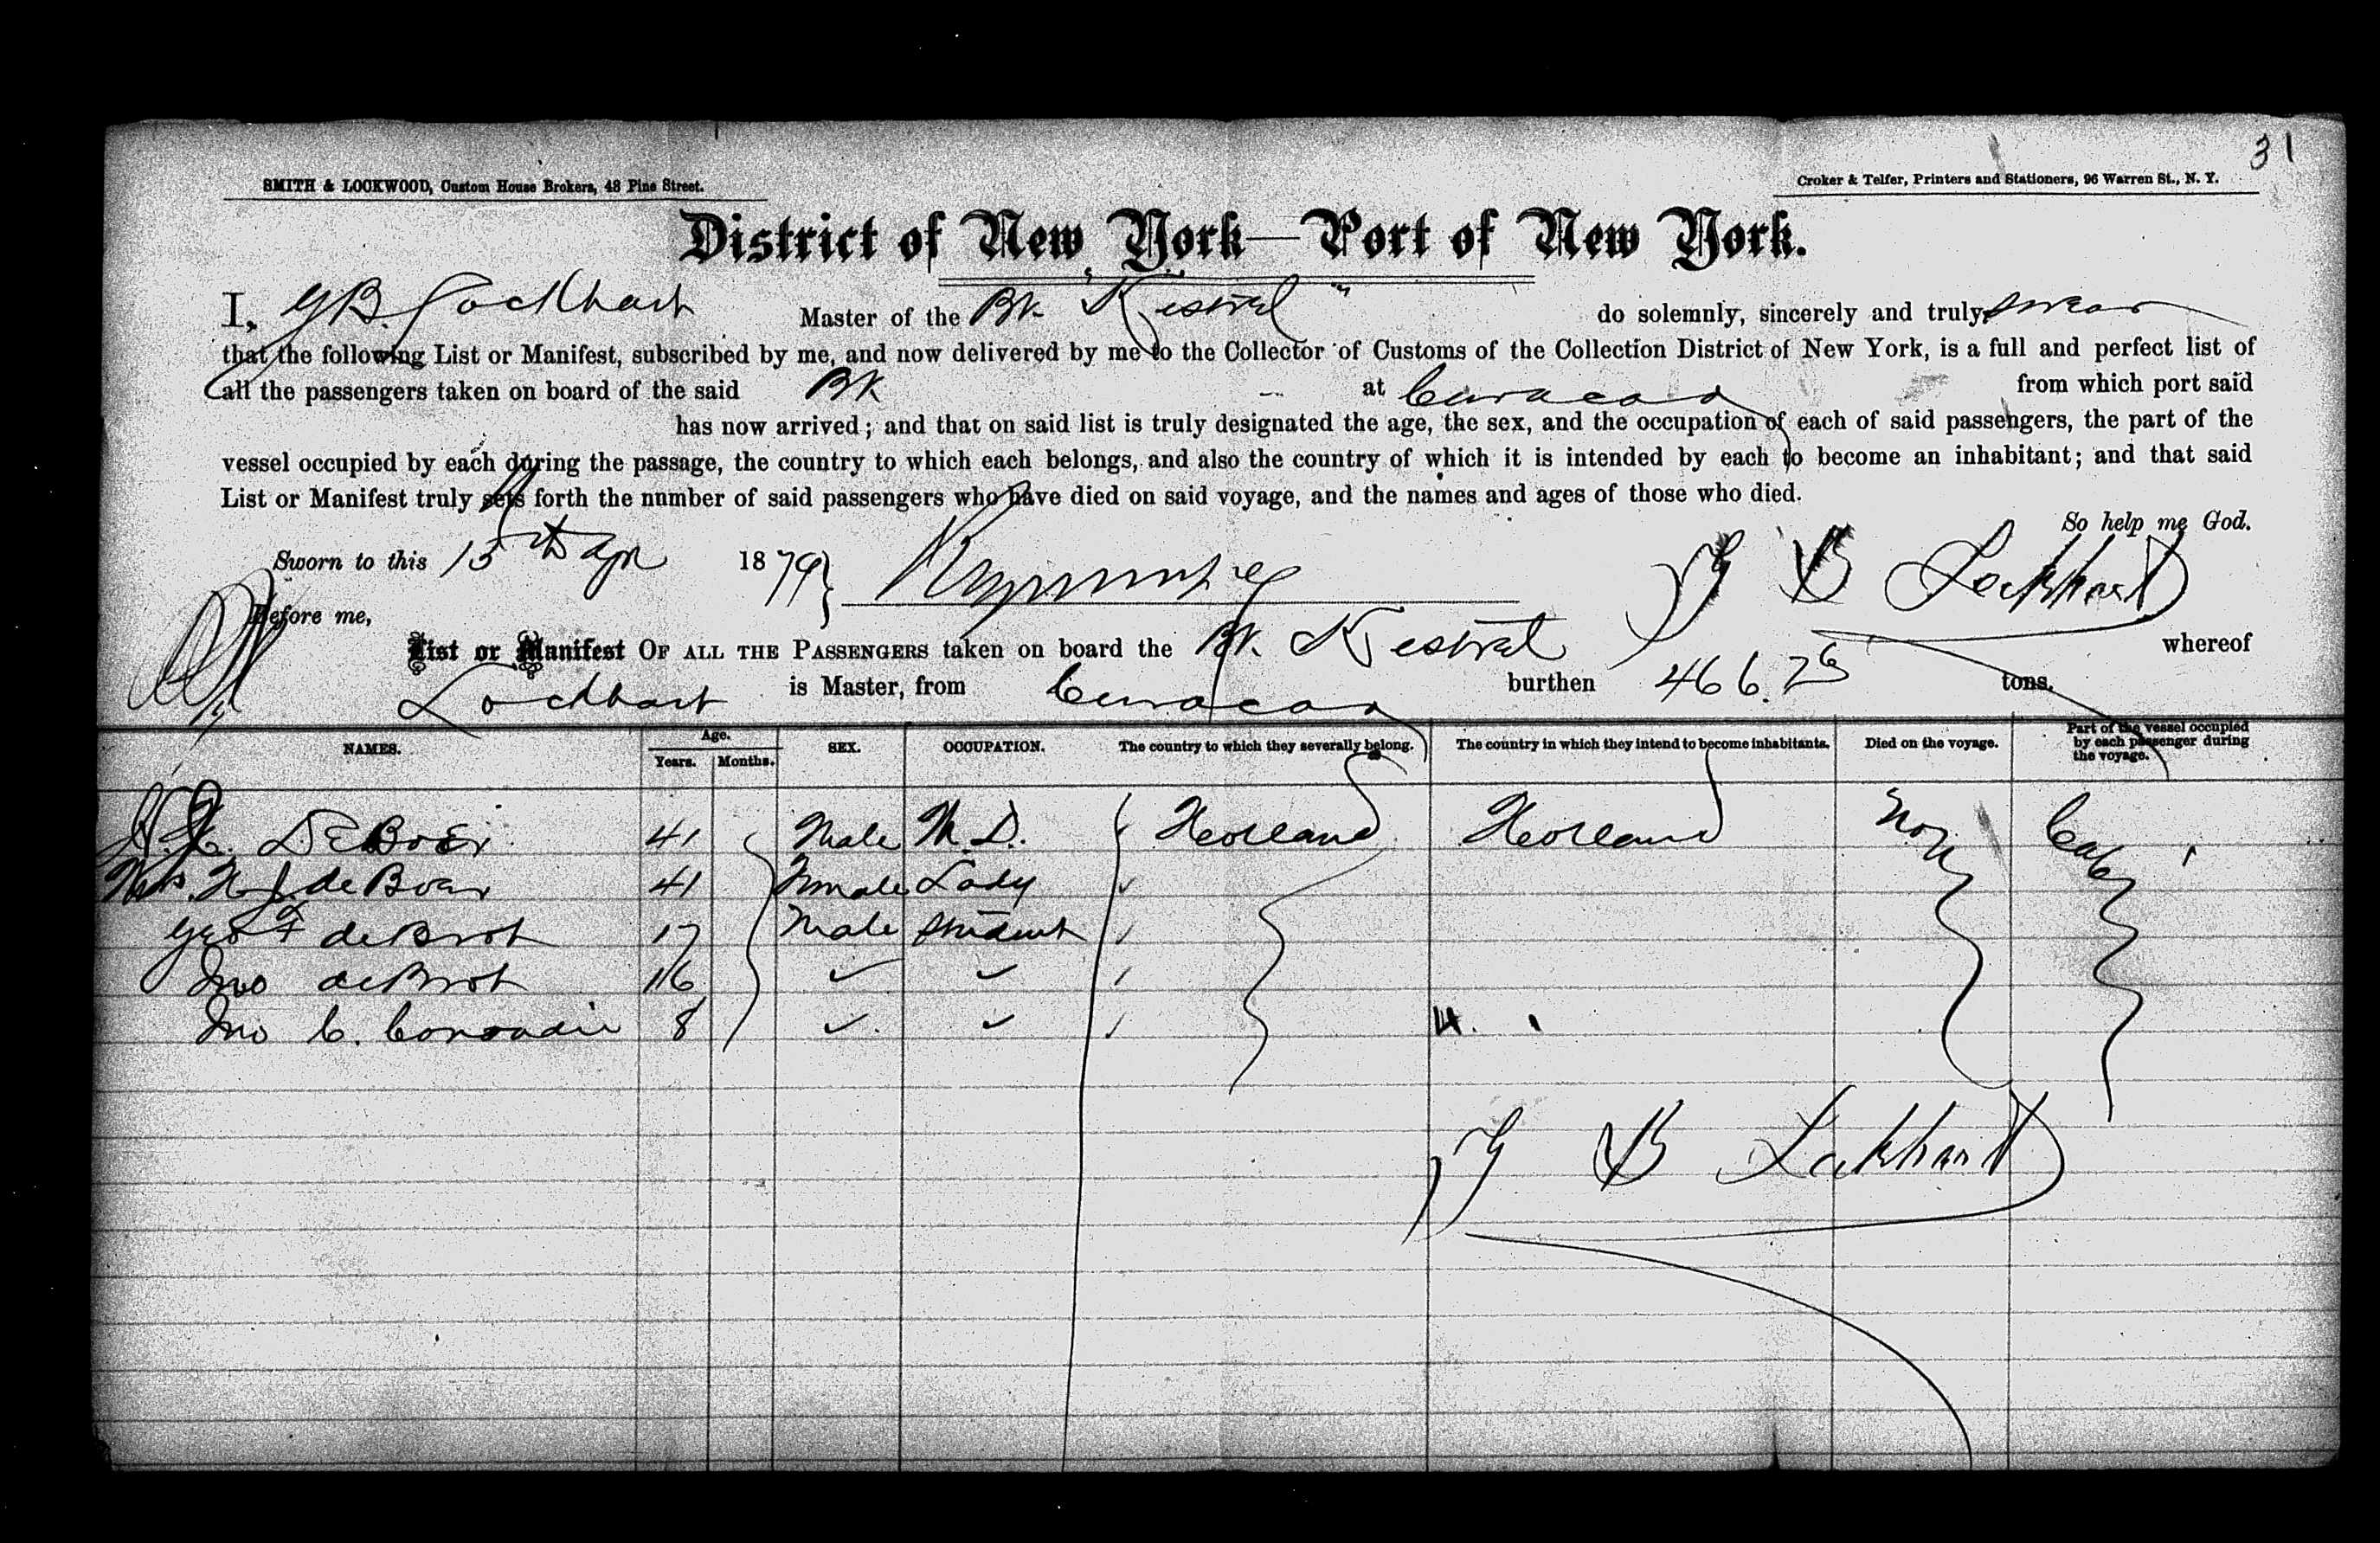 31
SMITH & LOCKWOOD, Custom House Brokers, 48 Pine Street.
Croker & Telfer, Printers and Stationers, 96 Warren St., N. Y.
District of New York—Port of New York.
I, G B. Lockhart Master of the Bk. "Kestrel" do solemnly, sincerely and truly swear
that the following List or Manifest, subscribed by me, and now delivered by me to the Collector of Customs of the Collection District of New York, is a full and perfect list of
all the passengers taken on board of the said Bk at Curacao from which port said
has now arrived; and that on said list is truly designated the age, the sex, and the occupation of each of said passengers, the part of the
vessel occupied by each during the passage, the country to which each belongs, and also the country of which it is intended by each to become an inhabitant; and that said
List or Manifest truly sets forth the number of said passengers who have died on said voyage, and the names and ages of those who died.
So help me God.
Sworn to this 15th Apr 1879} G B Lockhart
Before me,
List or Manifest OF ALL THE PASSENGERS taken on board the Bk. Kestrel whereof
Lockhart is Master, from Curacao burthen 466.76 tons.
NAMES. Age. Years. Months. SEX. OCCUPATION. The country to which they severally belong. The country in which they intend to become inhabitants. Died on the voyage. Part of the vessel occupied by each passenger during the voyage.
De Boer 41 Male M.D. Holland Holland Non Cab
Mrs. H. J. de Boer 41 Female Lady
Geo F deBrot 17 Male Student
Jno deBrot 16
Jno C. 8
G B Lockhart